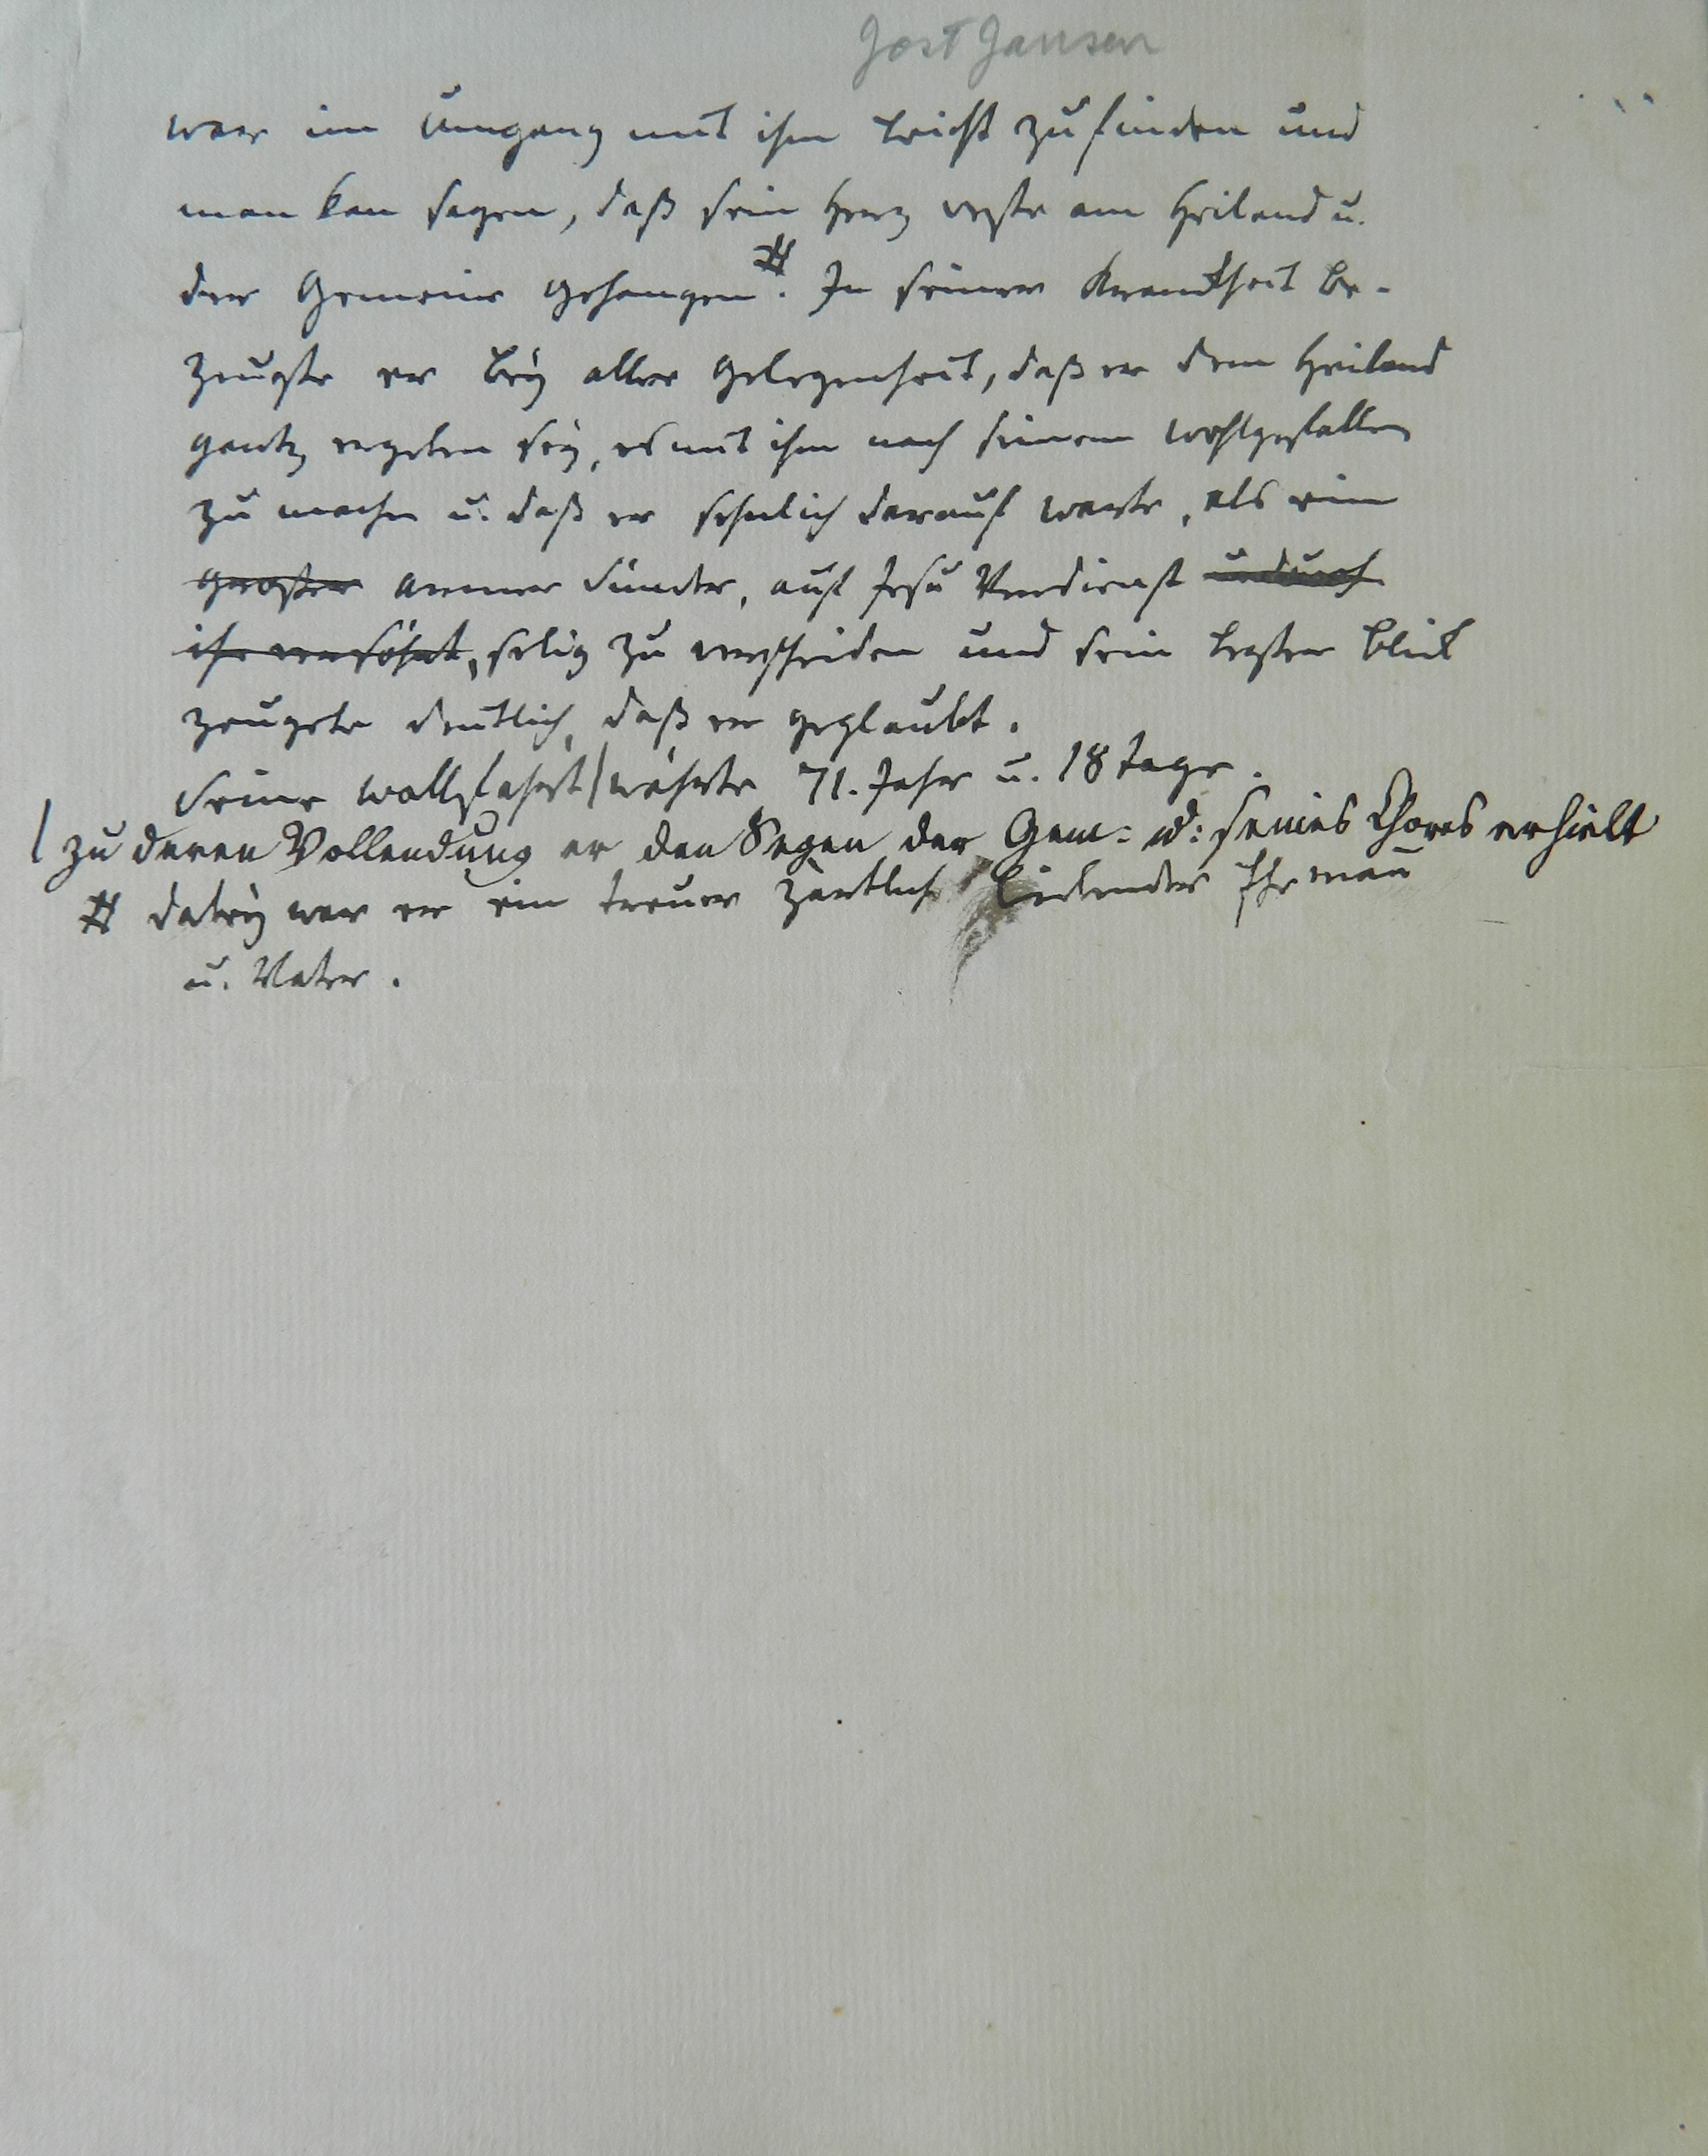 Jost Jansen
war im Umgang mit ihm leicht zu finden und
man kan sagen, daß sein Herz veste am Heiland u.
der Gemeine gehangen #. In seiner Kranckheit be-
zeugte er beÿ aller Gelegenheit, daß er dem Heiland
gantz ergeben seÿ, es mit ihm nach seinem wohlgefallen
zu machen u. daß er sehnlich darauf warte, als ein
großer armer Sünder, auf Jesu Verdienst u. durch
ihn versöhnt, selig zu verscheiden und sein lezter blick
zeugete deutlich, daß er geglaubt.
Seine wallfahrt / währte 71. Jahr u. 18 tage.
/ zu deren Vollendung er den Segen der Gem: u: seines Chores erhielt
# dabeÿ war er ein treuer zärtlich liebender Ehemañ
u. Vater.